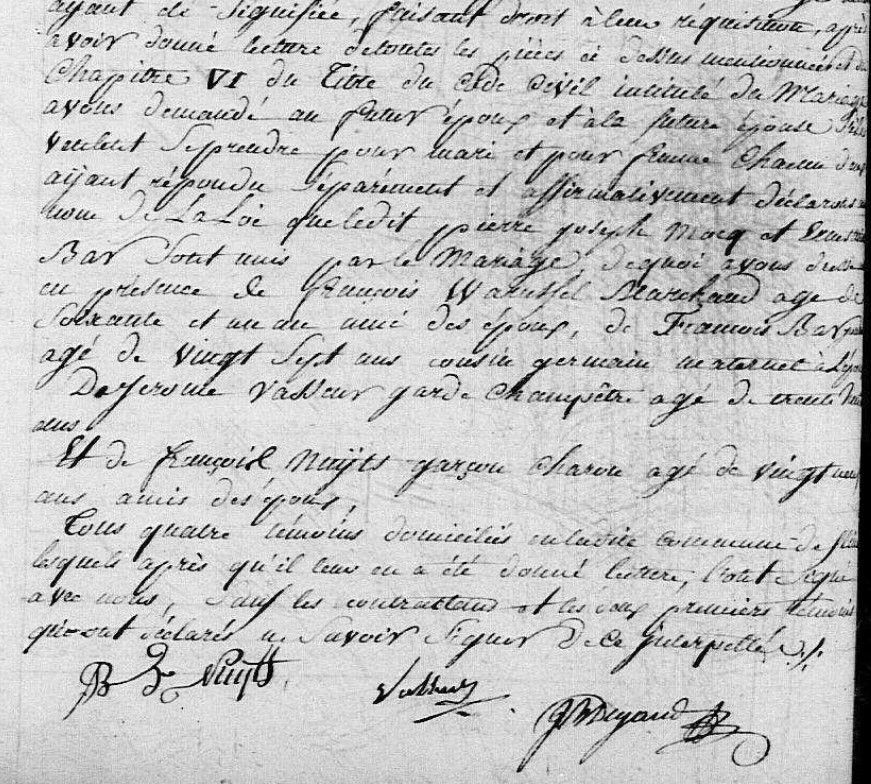 ayant été signifiée, faisant droit à leur réquisition, après
avoir donné lecture de toutes les pièces ci dessus mentionnées et du
Chapitre VI du Titre du Code Civil intitulé du Mariage
avons demandé au futur époux et à la future épouse s'ils
veulent se prendre pour mari et pour femme chacun d'eux
aÿant répondu séparément et affirmativement déclarons au
nom de La Loi que ledit pierre joseph Mocq et
Bar sont unis par le Mariage, de quoi avons
en présence de françois Marchand agé de
soixante et un an ami des époux, de François Bar
agé de vingt sept ans cousin germain maternel à L'épouse
De Jerome Vasseur garde Champêtre agé de trente
ans
Et de françois Nuÿts garçon Charon agé de vingt neuf
ans amis des époux,
Tous quatre témoins domiciliés en ladite Commune de
lesquels après qu'il leur en a été donné lecture, l'ont signé
avec nous, sauf les contractans et les deux premiers témoins
qui ont déclarés ne savoir signer de ce interpellé ./.
Nuÿts Vasseur